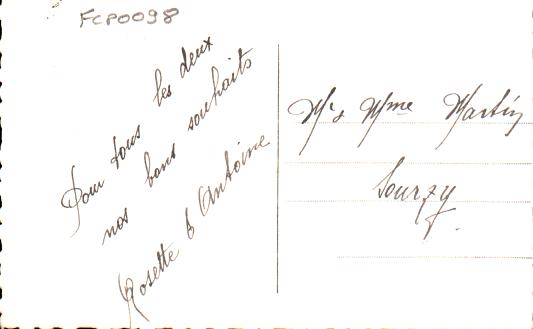 FCP0098
Pour tous les deux
nos bons souhaits
Rosette & Antoine
Mr & Mme Martin
Sourzy